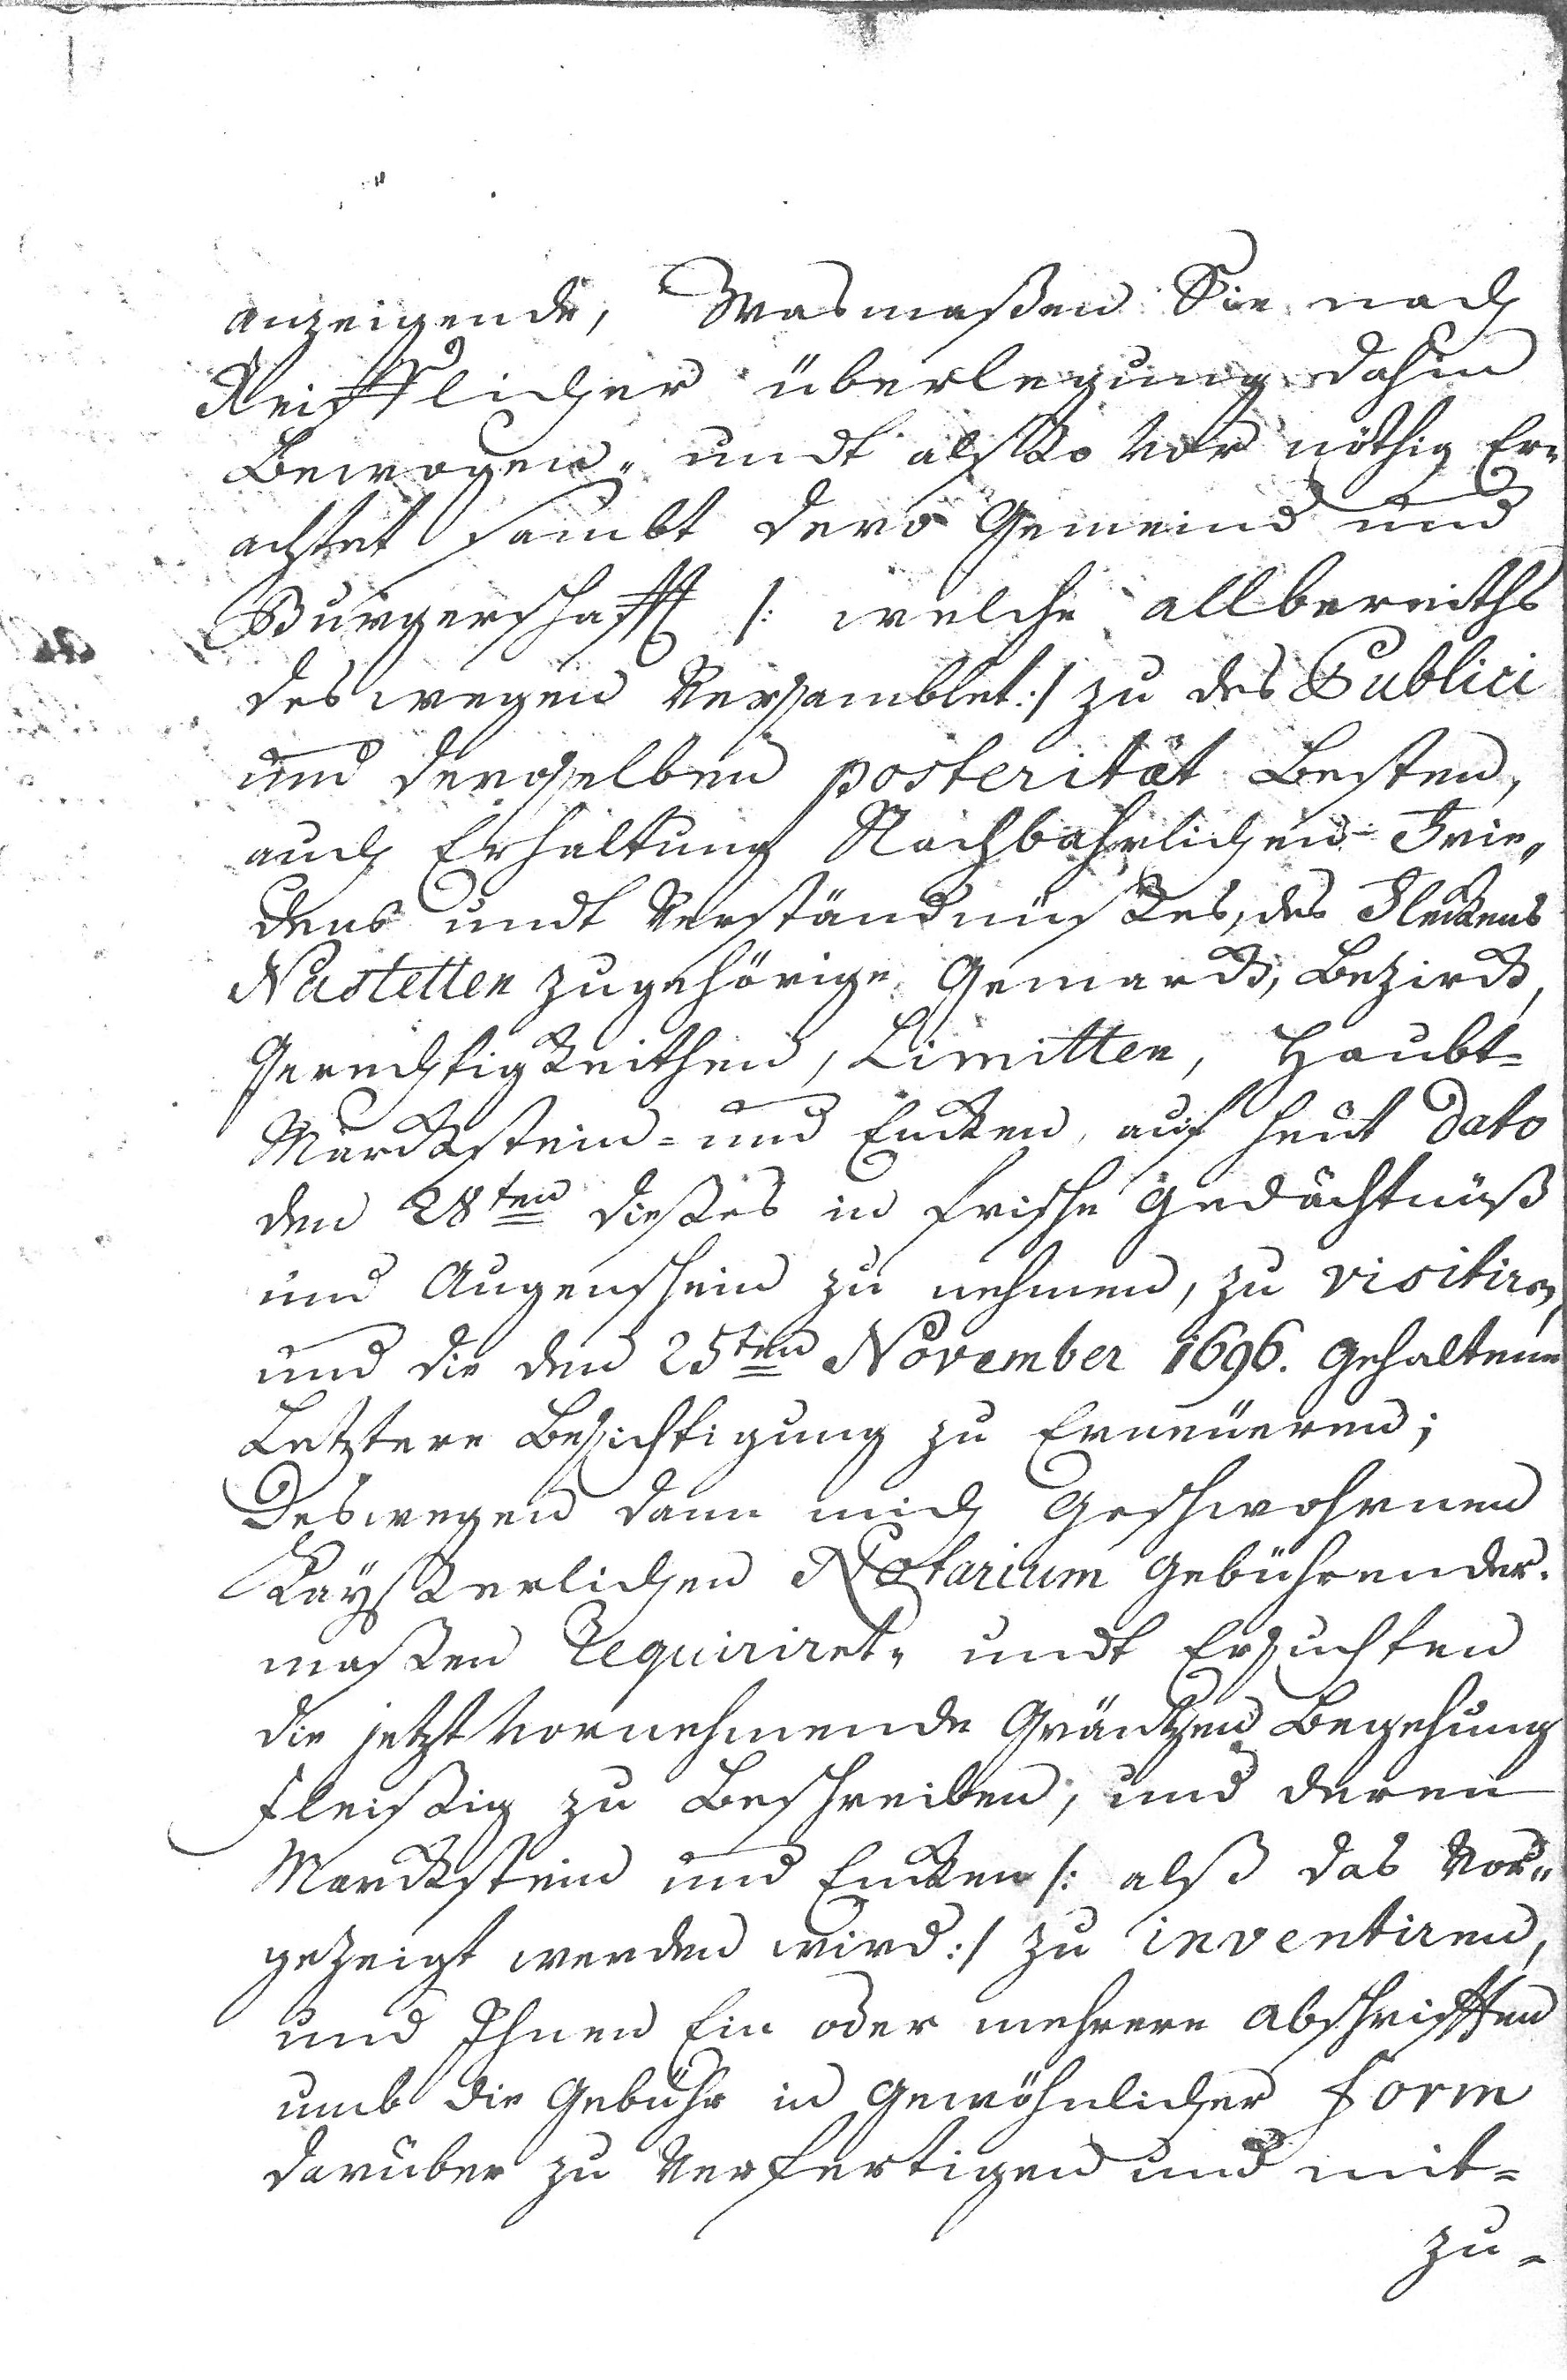 anzeigende, Wasmaßen Sie nach
Reifflicher überlegung dahin
Bewogen, undt alßo Vor nöthig Er=
achtet sambt dero Gemeind und
Burgerschafft /: welche allbereiths
deswegen Versamblet :/ zu des Publici
und deroselben posterität Besten,
auch Erhaltung Nachbahrlichen Frie„
dens undt Verständnüßes, des Fleckens
Nastetten zugehörige Gemarck, Bezirck,
Gerechtigkeithen, Limitten, Haubt=
Marckstein= und Ecken, auf heut dato
den 28ten dießes in frische Gedächtnüß
und Augenschein zu nehmen, zu visitiren,
und die den 25ten November 1696. gehaltene
Letztere Besichtigung zu Erneüeren;
Deswegen dann mich Geschwohrnen
Kayßerlichen Notarium Gebührender.
maßen Requiriret, undt Ersuchten
die jetzt Vornehmende Gräntzen Begehung
fleißig zu Beschreiben, und deren
Marckstein und Ecken /: alß das Vor„
gezeigt werden wird :/ zu inventiren,
und Ihnen Ein oder mehrere Abschrifften
umb die Gebühr in Gewöhnlicher form
darüber zu Verfertigen und mit=
zu=